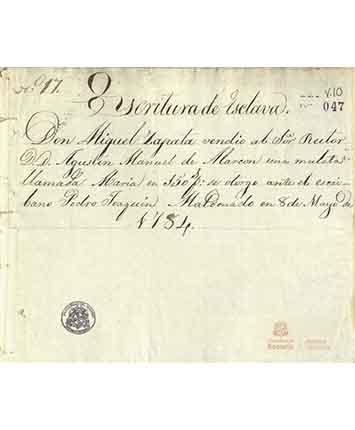 No. 17.
Escritura de Esclava.
V.10
047
Don Miguel Zapata vendio al Sor. Rector
D. D. Agustin Manuel de Alarcon una mulata
llamada Maria en 350 p: se otorgo ante el escri-
bano Pedro Joaquin Maldonado en 8 de Mayo de
1784.
Rosario